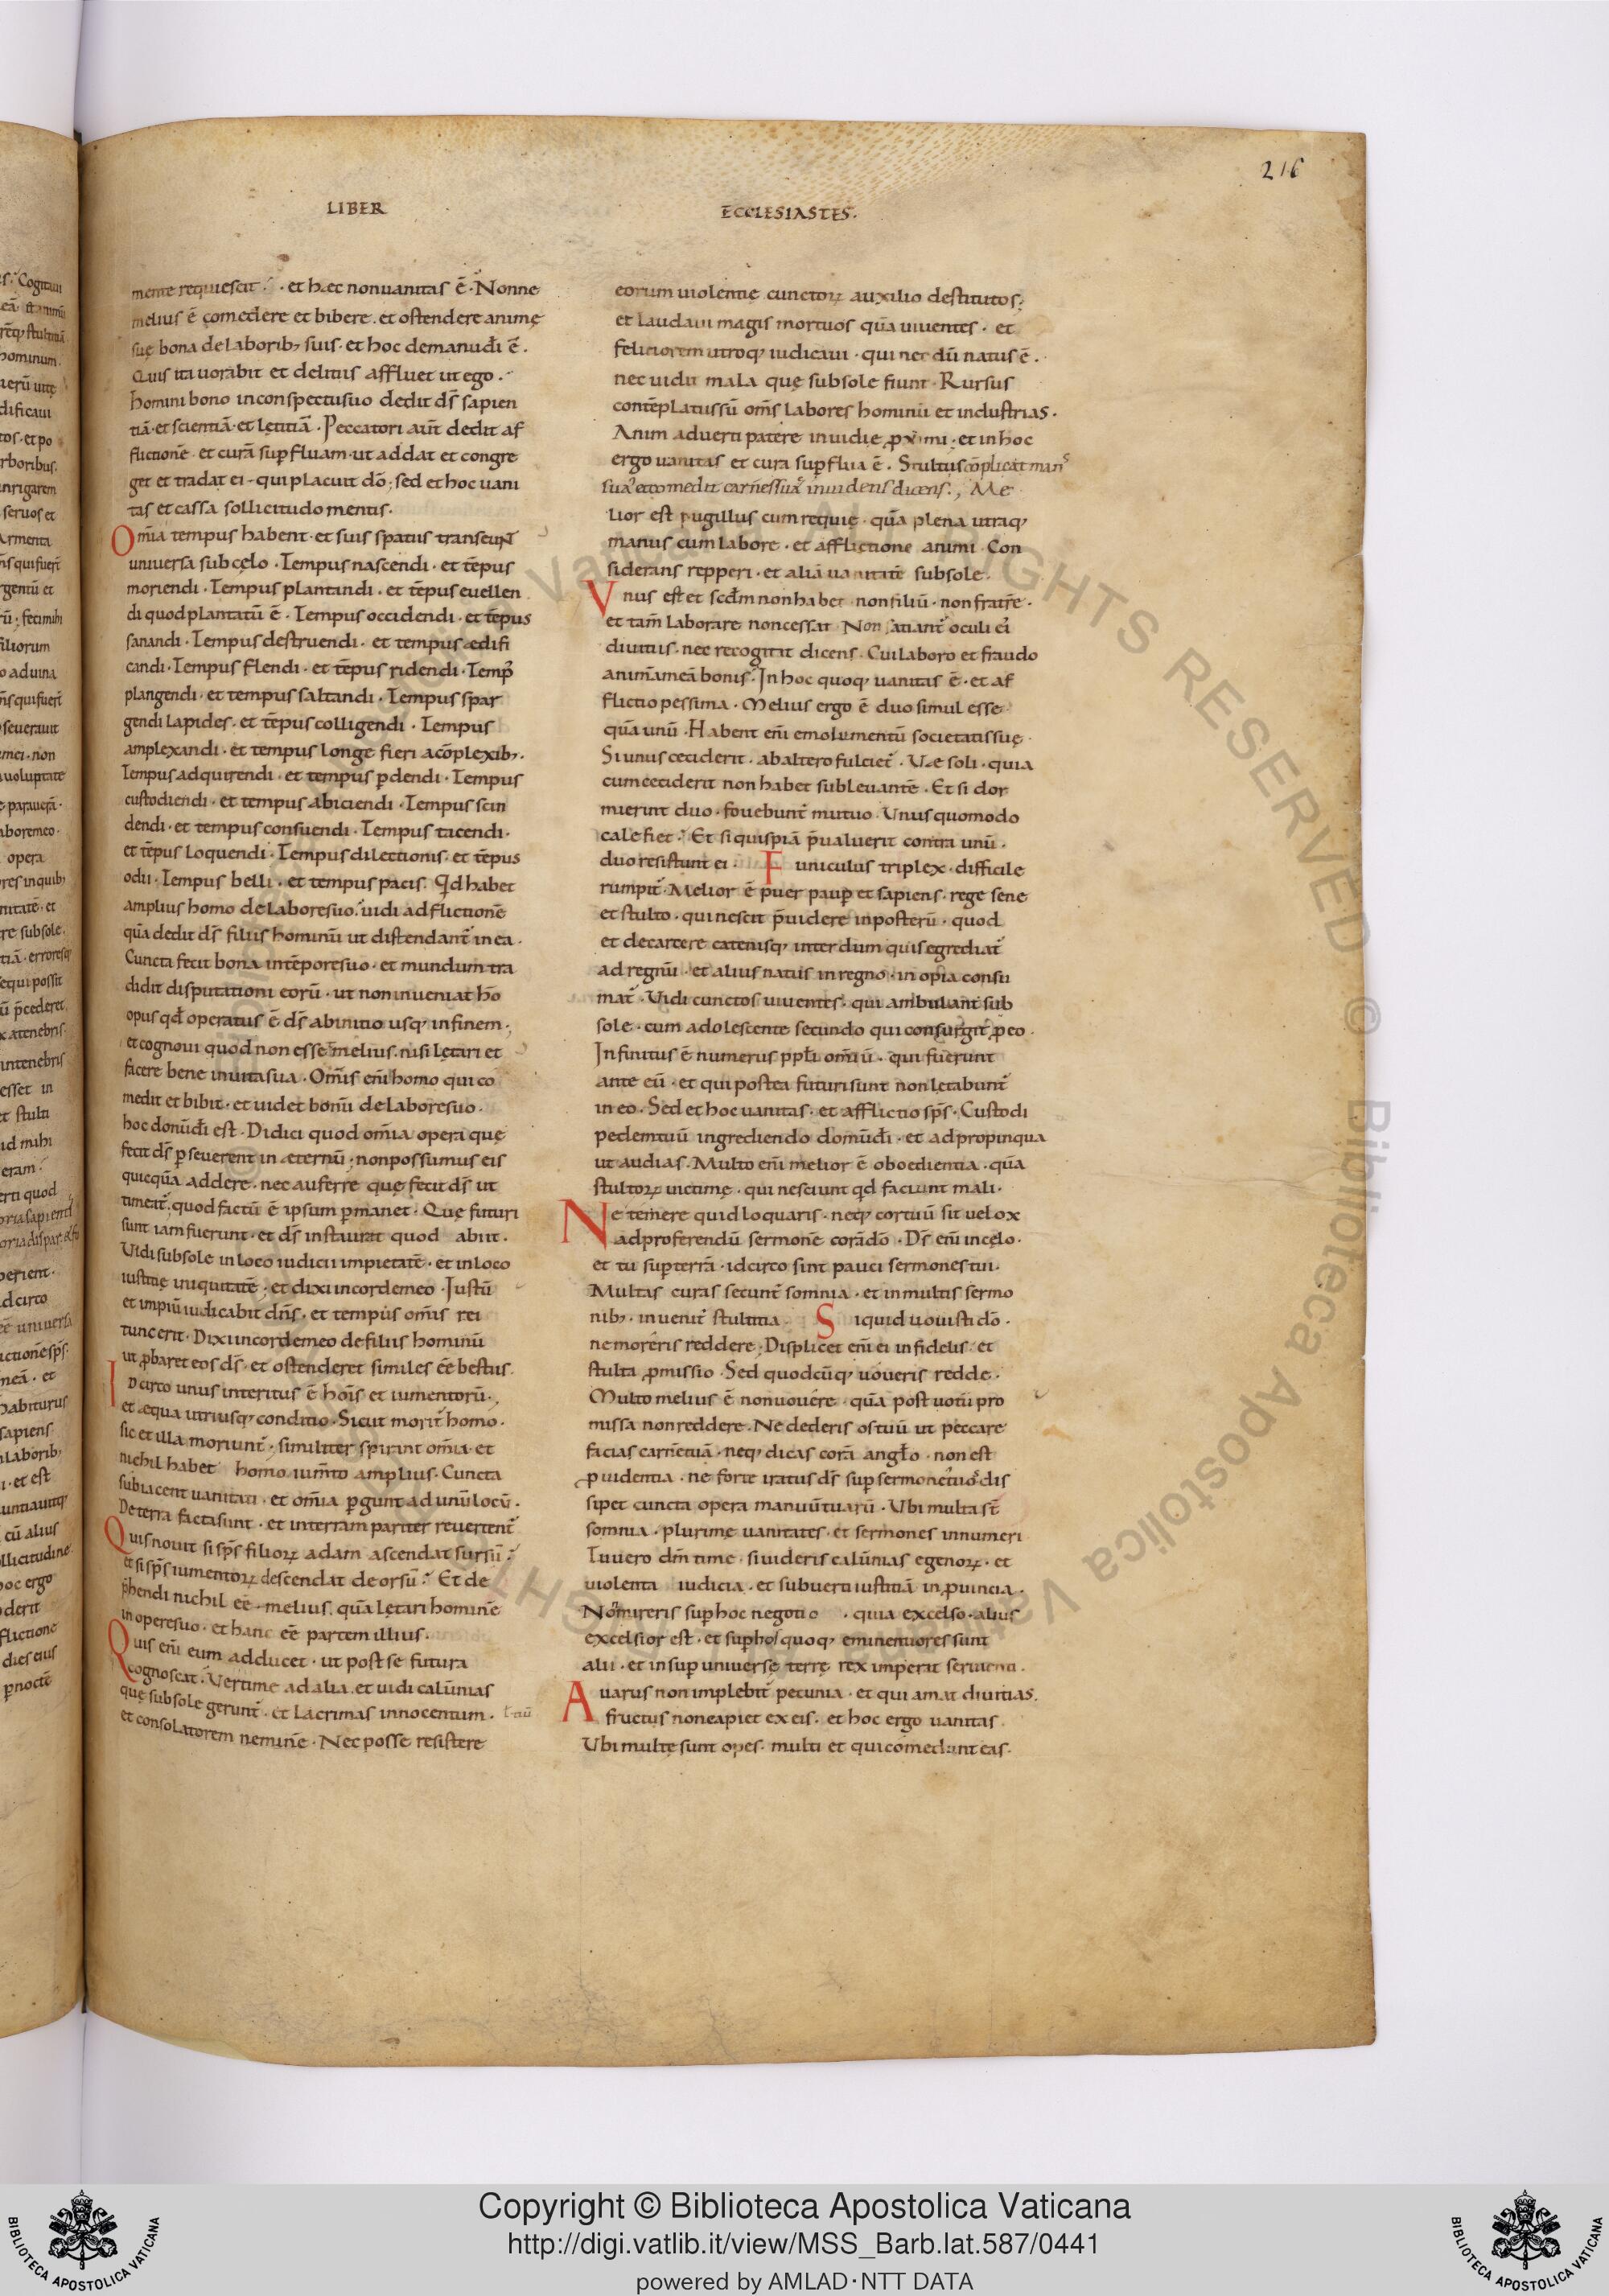 216
LIBER
ECCLESIASTES.
mente requiescit · et hæc non uanitas ē · Nonne
melius ē comedere et bibere · et ostendere animę
suę bona de laborib; suis · et hoc de manu dī ē ·
Quis ita uorabit et deliciis affluet ut ego ·
homini bono in conspectu suo dedit dſ sapien
tiā · et scientiā · et lętitiā · Peccatori aut̄ dedit af
flictionē · et curā supfluam · ut addat et congre
get et tradat ei · qui placuit dō; sed et hoc uani
tas et cassa sollicitudo mentis ·
Omīa tempus habent · et suis spatiis transeunt
uniuersa sub cęlo · Tempus nascendi · et tēpus
moriendi · Tempus plantandi · et tēpus euellen
di quod plantatū ē · Tempus occidendi · et tēpus
sanandi · Tempus destruendi · et tempus ædifi
candi · Tempus flendi · et tēpus ridendi · Temp᾽
plangendi · et tempus saltandi · Tempus spar
gendi lapides · et tēpus colligendi · Tempus
amplexandi · et tempus longe fieri a cōplexib; ·
Tempus adquirendi · et tempus pdendi · Tempus
custodiendi · et tempus abiciendi · Tempus scin
dendi · et tempus consuendi · Tempus tacendi ·
et tēpus loquendi · Tempus dilectionis · et tēpus
odii · Tempus belli · et tempus pacis · Qd habet
amplius homo de labore suo · uidi adflictionē
quā dedit dſ filiis hominū ut distendant᾽ in ea ·
Cuncta fecit bona in tēpore suo · et mundum tra
didit disputationi eorū · ut non inueniat hō
opus qđ operatus ē dſ ab initio usq; in finem ·
et cognoui quod non esse melius nisi lętari et
facere bene in uita sua · Omīs enī homo qui co
medit et bibit · et uidet bonū de labore suo ·
hoc donū dī est · Didici quod omīa opera quę
fecit dſ pseuerent in æternū; non possumus eis
quicquā addere · nec auferre quę fecit dſ ut
timeat᾽; quod factū ē ipsum pmanet · Quę futuri
sunt iam fuerunt · et dſ instaurat quod abiit ·
Uidi sub sole in loco iudicii impietatē · et in loco
iustitię iniquitatē · et dixi in corde meo · Justū
et impiū iudicabit dn̄s · et tempus omīs rei
tunc erit · Dixi in corde meo de filiis hominū
ut pbaret eos dſ · et ostenderet similes eē bestiis ·
Idcirco unus interitus ē hoīs et iumentorū ·
et æqua utriusq; conditio · Sicut morit᾽ homo ·
sic et illa moriunt᾽ · similiter spirant omīa · et
nichil habet homo iumīto amplius · Cuncta
subiacent uanitati · et omīa pgunt ad unū locū ·
De terra facta sunt · et in terram pariter reuertent᾽
Quis nouit si sp̄s filioꝝ adam ascendat sursū ·
et si sp̄s iumentoꝝ descendat deorsū · Et de
p̄hendi nichil eē melius quā lętari hominē
in opere suo · et hanc eē partem illius ·
Quis enī eum adducet · ut post se futura
cognoscat · Verti me ad alia · et uidi calūnias
quę sub sole gerunt᾽ · et lacrimas innocentum ·
et consolatorem neminē · Nec posse resistere
eorum uiolentię cunctoꝝ auxilio destitutos;
et laudaui magis mortuos quā uiuentes · et
feliciorem utroq; iudicaui · qui nec dū natus ē ·
nec uidit mala quę sub sole fiunt · Rursus
contēplatus sū omīs labores hominū et industrias ·
Anim aduerti patere inuidię pximi · et in hoc
ergo uanitas et cura supflua ē · Stultus cōplicat man᾽
suas et comedit carnes suas inuidens dicens · Me
lior est pugillus cum requie · quā plena utraq;
manus cum labore · et afflictione animi · Con
siderans repperi · et aliā uanitatē sub sole ·
Vnus est et scd̄m non habet non filiū · non fratrē ·
et tam̄ laborare non cessat Non satiant᾽ oculi ei᾽
diuitiis · nec recogitat dicens · Cui laboro et fraudo
animā meā bonis · In hoc quoq; uanitas ē · et af
flictio pessima · Melius ergo ē duo simul esse
quā unū · Habent enī emolumentū societatis suę
Si unus ceciderit · ab altero fulciet᾽ · Væ soli · quia
cum ceciderit non habet subleuantē · Et si dor
mierint duo · fouebunt᾽ mutuo · Unus quomodo
calefiet · Et si quispiā p̄ualuerit contra unū ·
duo resistunt ei · Funiculus triplex · difficile
rumpit᾽ · Melior ē puer paup et sapiens · rege sene
et stulto · qui nescit p̄uidere in posterū · quod
et de carcere catenisq; interdum quis egrediat᾽
ad regnū · et alius natus in regno · inopia consu
mat᾽ · Uidi cunctos uiuentes · qui ambulant sub
sole · cum adolescente secundo qui consurgit p eo ·
Infinitus ē numerus ppl̄i omīū · qui fuerunt
ante eū · et qui postea futuri sunt non lętabunt᾽
in eo · Sed et hoc uanitas · et afflictio sp̄s · Custodi
pedem tuū ingrediendo domū dī · et adpropinqua
ut audias · Multo enī melior ē oboedientia · quā
stultoꝝ uictimę · qui nesciunt qd faciunt mali ·
Ne temere quid loquaris · neq; cor tuū sit uelox
ad proferendū sermonē corā dō · Dſ enī in cęlo ·
et tu sup terrā · idcirco sint pauci sermones tui ·
Multas curas secunt᾽ somnia · et in multis sermo
nib; inuenit᾽ stultitia · Siquid uouisti dō ·
ne moreris reddere · Displicet enī ei infidelis · et
stulta pmissio · Sed quodcūq; uoueris redde ·
Multo melius ē non uouere · quā post uotū pro
missa non reddere · Ne dederis os tuū ut peccare
facias carnē tuā · neq; dicas corā angl̄o · non est
puidentia · ne forte iratus dſ sup sermonē tuo dis
sipet cuncta opera manuū tuarū · Ubi multa st̄
somnia · plurimę uanitates · et sermones innumeri
Tu uero dm̄ time · si uideris calūnias egenoꝝ · et
uiolenta iudicia · et subuerti iustitiā in puincia ·
Nō mireris sup hoc negotio · quia excelso · alius
excelsior est · et sup hos quoq; eminentiores sunt
alii · et insup uniuersę terrę rex imperat seruienti ·
Auarus non implebit᾽ pecunia · et qui amat diuitias
fructus non capiet ex eis · et hoc ergo uanitas ·
Ubi multę sunt opes · multi et qui comedant eas ·
Copyright © Biblioteca Apostolica Vaticana
http://digi.vatlib.it/view/MSS_Barb.lat.587/0441
powered by AMLAD·NTT DATA
BIBLIOTECA APOSTOLICA VATICANA
BIBLIOTECA APOSTOLICA VATICANA